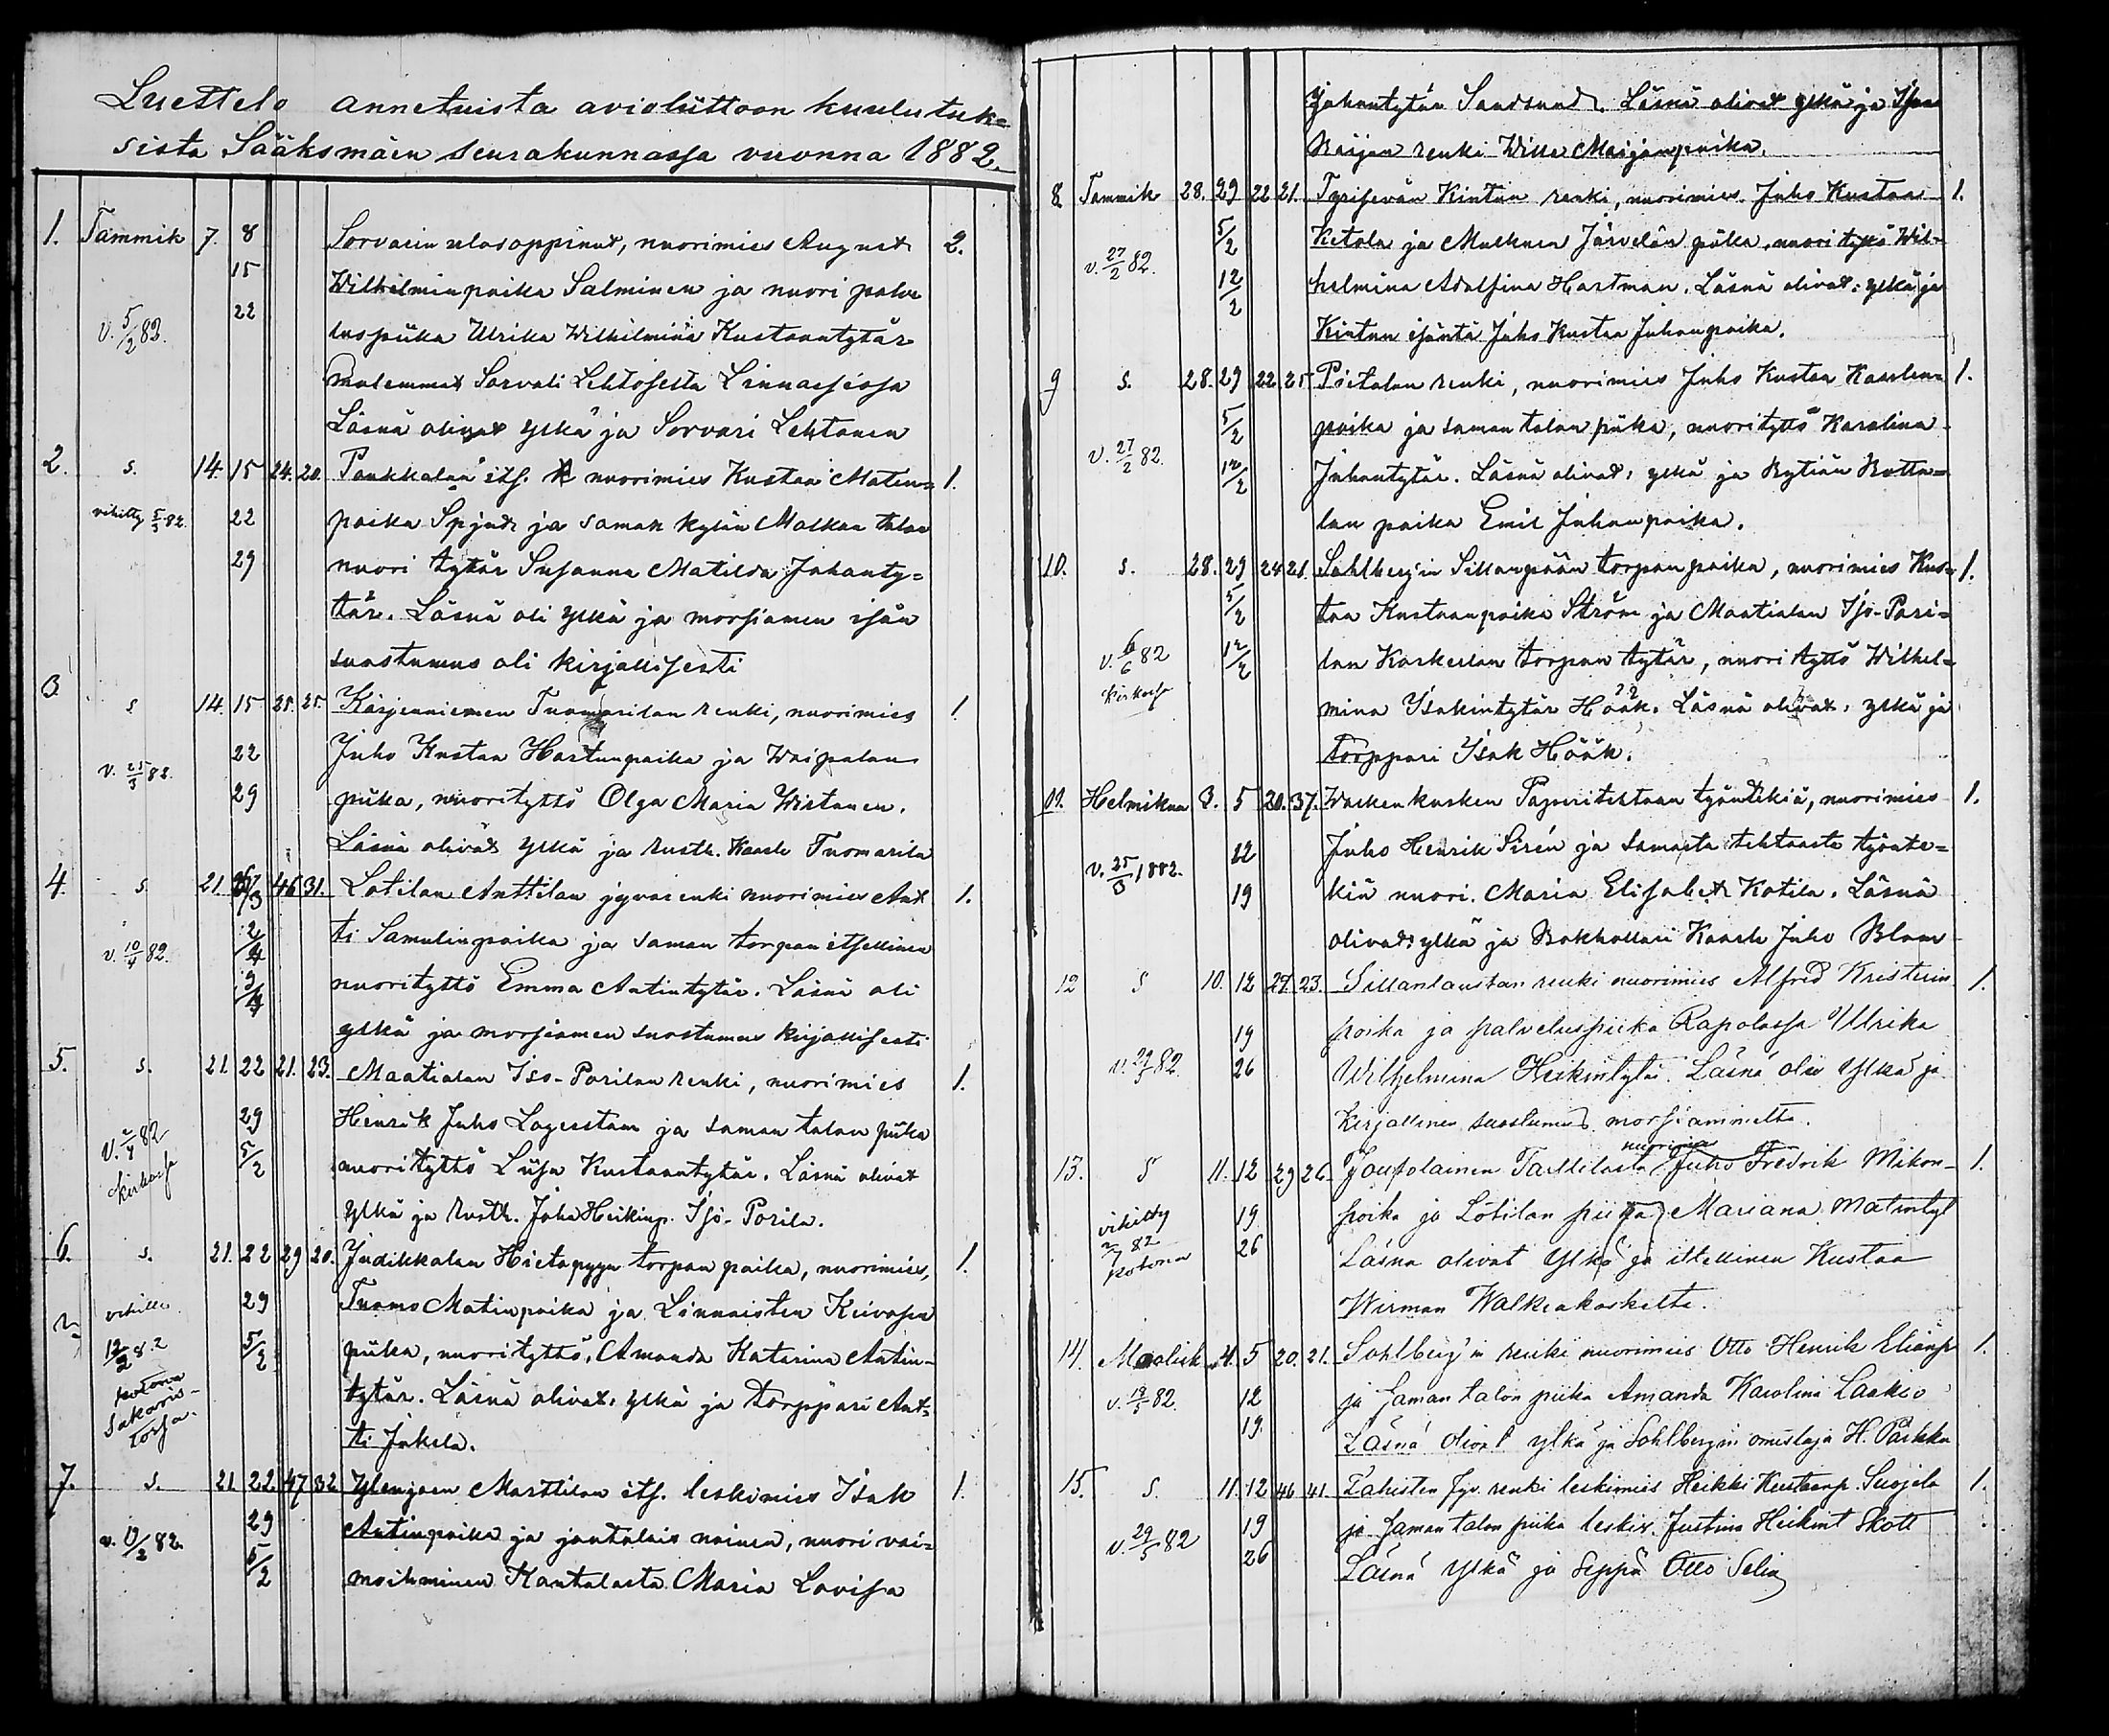 Luettelo annetuista avioliittoon kuulutuk=
sista Sääksmäen seurakunnassa vuonna 1882.
1. Tammik 7. 8 Sorvarin ulosoppinut, nuorimies August 2.
15 Wilhelminpoika Salminen ja nuori palve
22
v. 5/2 82. luspiika Ulrika Wilhelmina Kustaantytär
molemmat Sorvali Lehtosesta Linnaisissa
Läsnä olivat ylkä ja Sorvari Lehtonen
2. s. 14. 15 24. 20. Pankkalan its. nuorimies Kustaa Maten= 1.
vihitty 5/3 82. 22 poika Spjut ja saman kylän Matkan talon
29 nuori tytär Susanna Matilda Johanty=
tär. Läsnä oli ylkä ja morsiamen isän
suostumus oli kirjallisesti
3 s 14. 15 25. 25. Kärjenniemen Tuomarilan renki, nuorimies 1.
22 Juho Kustaa Hartunpoika ja Waipalan
v. 25/3 82.
29 piika, nuorityttö Olga Maria Wirtanen.
Läsnä olivat ylkä ja rusth. Kaarle Tuomarila
4. s. 21. 26/3 46 31. Lotilan Anttilan jyvärenki nuorimies Ant 1.
v. 10/4 82. 2/4 ti Samulinpoika ja saman torpan itsellinen
9/4 nuorityttö Emma Antintytär. Läsnä oli
ylkä ja morsiamen suostumus kirjallisesti
5. s. 21. 22 21. 23. Maatialan Iso-Porilan renki, nuorimies 1.
29 Henrik Juho Lagerstam ja saman talon piika
v. 2/4 82 5/2 nuorityttö Liisa Kustaantytär. Läsnä olivat
kirkossa
ylkä ja rusth. Juha Heikinp. Iso-Porila.
6. s. 21. 22 29 20. Judikkalan Hietapyyn torpan poika, nuorimies, 1.
vihille 29 Tuomo Matinpoika ja Linnaisten Keivosen
12/2 82 5/2 piika, nuorityttö, Amanda Katarina Antin-
kotona
tytär. Läsnä olivat, ylkä ja torppari Ant=
ti Jukela.
7. s. 21. 22. 47 32 Ylenjoen Marttilan its. leskimies Isak 1.
29 Antinpoika ja joutolais nainen, nuori vai=
v. 19/2 82. 5/2 moihminen Kantalasta Maria Lovisa
Johantytär Sandsund. Läsnä olivat ylkä ja Ison
Raijan renki Wille Maijanpoika.
8. Tammik 28. 29 22 21. Tyrisevän Kintun renki, nuorimies Juho Kustaa 1.
5/2 Ketola ja Mulkuen Järvelän piika, nuori tyttö Wil-
v. 27/2 82. 12/2 helmina Adolfina Hartman. Läsnä olivat: ylkä ja
Kintun isäntä Juho Kustaa Juhanpoika.
9 s. 28. 29 22. 25 Pietalan renki, nuorimies Juho Kustaa Kaarlen= 1.
5/2 poika ja saman talon piika, nuorityttö Karolina
v. 27/2 82. 12/2 Juhantytär. Läsnä olivat: ylkä ja Rytiän Rotta=
lan poika Emil Juhanpoika.
10. s. 28. 29 24 21. Sahlberg'in Sillanpään torpanpoika, nuorimies Kus= 1.
5/2 taa Kustaanpoika Ström ja Maatialan Iso-Pori=
v. 6/6 82 12/2 lan Koskelan torpan tytär, nuori tyttö Wilhel=
kirkossa mina Isakintytär Höök. Läsnä olivat: ylkä ja
torppari Isak Höök.
11. Helmikuu 3. 5 20. 37. Walkeakosken Paperitehtaan työntekiä, nuorimies 1.
12 Juho Henrik Sirén ja samasta tehtaasta työnte=
v. 25/3 1882. 19 kiä nuori. Maria Elisabet Kotila. Läsnä
olivat: ylkä ja Bokhollari Kaarle Juho Blom
12 s 10. 12 27. 23. Sillanlaustan renki nuorimies Alfred Kristerin 1.
19 poika ja palveluspiika Rapolassa Ulrika
26 Wilhelmina Heikintytär. Läsnä oliv ylkä ja
Kirjallinen suostumus morsiammelta.
nuorimies
13. s 11. 12 29 26. Joutolainen Tarttilasta Juho Fredrik Mikon- 1.
vihitty 19 poika ja Lotilan piika Mariana Matintyt
82 26 Läsnä olivat ylkä ja ittellinen Kustaa
kotona
Wirman Walkiakoskelta.
14. Maalisk 4. 5 20. 21. Sahlberg'in renki nuorimies Otto Henrik Elianp 1.
v. 19/5 82. 12 ja saman talon piika Amanda Karolina Laakso
19. Läsnä olivat ylkä ja Sahlbergin omistaja H. Paikka
15. s. 11. 12 46 41. Tahisten Jyv. renki leskimies Heikki Kustaanp. Suojela 1.
19 ja saman talon piika leskiv. Justina Heikint Skott
v. 29/5 82 26 Läsnä ylkä ja Seppä Otto Selin